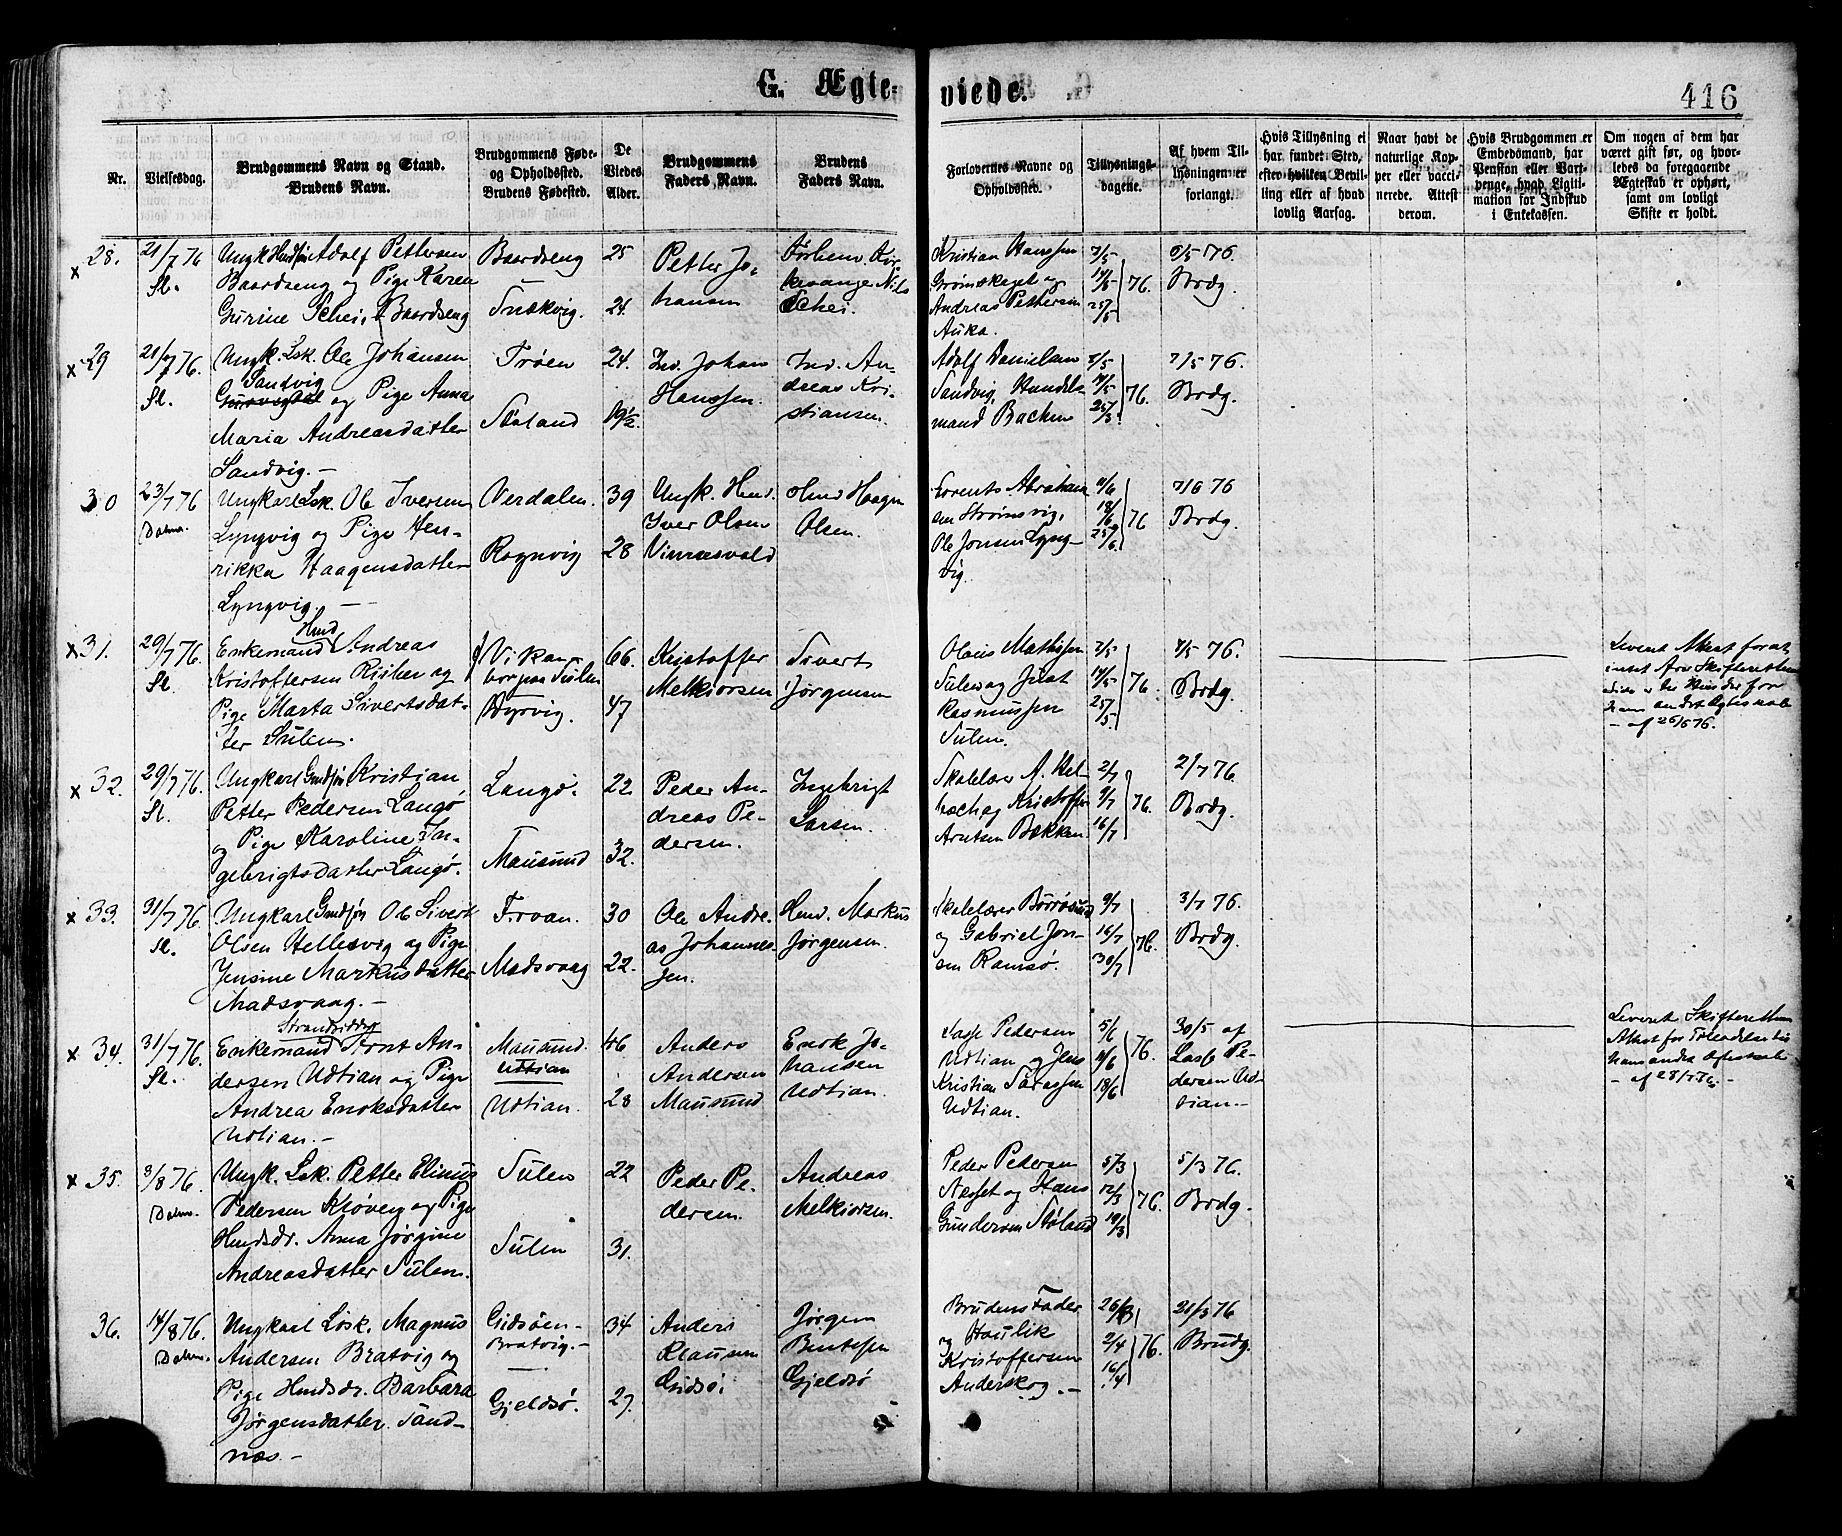 G. Ægte- viede.
416
Nr.
Vielsesdag.
Brudgommens Navn og Stand.
Brudens Navn.
Brudgommens Føde-
og Opholdssted.
Brudens Fødested.
De
Viedes
Alder.
Brudgommens
Faders Navn.
Brudens
Faders Navn.
Forlovernes Navne og
Opholdssted.
Tillysnings-
dagene.
Af hvem Til-
lysningen er
forlangt.
Hvis Tillysning ei
har fundet Sted,
efter hvilken Bevil-
ling eller af hvad
lovlig Aarsag.
Naar havt de
naturlige Kop-
per eller vacci-
nerede. Attest
derom.
Hvis Brudgommen er
Embedsmand, har
Pension eller Vart-
penge, hvad Ligiti-
mation for Indskud
i Enkekassen.
Om nogen af dem har
været gift før, og hvor-
ledes da foregaaende
Ægteskab er ophørt,
samt om lovligt
Skifte er holdt.
x 28.
21/7 76
Sl.
Ungk. Adolf Pettersen
Baardseng og Pige Karen
Gurine Schei, Baardseng
Baardseng
25
24
Petter Jo-
hansen
Nils
Schei.
Kristian Hanssen
og
Andreas Pettersen
Auka.
7/5
14/5
25/5
76
76.
Brdg.
x 29
76.
Sl.
Ungk. Lsk. Ole Johansen
Sandvig
og Pige Anna
Maria Andreasdatter
Sandvig. -
Trøen
Støland
24.
19 1/2
Ind. Johan
Hanssen.
Ind. An-
dreas Kri-
stiansen.
Adolf Danielsen
Sandvig, Handels-
mand Backen
7/5
14/5
25/5
76.
7/5 76.
Brdg.
30
23/7 76
Dolmø.
Ungkarl Lsk. Ole Iversen
Lyngvig og Pige Hen-
rikka Haagensdatter
Lyngvig. -
Verdalen.
Rognvig
39
28
Ungk. Hmd.
Iver Olsen
Vinnesvald
Hmd Haagen
Olsen.
Lorents Abraham-
sen Strømsvig,
Ole Jonsen Lyng-
vig.
11/6
18/6
25/6
76
7/6 76
Brdg.
x 31.
29/7 76.
Sl.
Enkemand Hmd Andreas
Kristoffersen og
Pige Marta Sivertsdat-
ter Sulen.
f Vikan
bor paa Sulen
Dyrvig.
66.
47
Kristoffer
Melkiorsen
Sivert
Jørgensen
Olaus Mathissen
Sulen og Just
Rasmussen
Sulen.
7/5
14/5
25/5
76
7/5 76.
Brdg.
Levent Attest for at
intet Skifteretten
for
hans andet Egteskab
- af 26/5 76.
x 32.
29/7 76.
Sl.
Ungkarl Gmdsøn Kristian
Petter Pedersen Langø
og Pige Karoline In-
gebrigtsdatter Langø.
Langø.
Mausund
22
32.
Peder An-
dreas Pe-
dersen.
Ingebrigt
Larsen.
Skolelærer A. Hel-
og Kristoffer
Arntsen Bekken
2/7
9/7
16/7
76.
2/7 76.
Brdg.
x 33.
31/7 76.
Sl.
Ungkarl Gmdsøn Ole Sivert
Olsen Hellesvig og Pige
Jensine Markusdatter
Madsvaag. -
Froan.
Madsvaag
30
22.
Ole Andre-
as Johannes-
sen.
Hmd. Markus
Jørgensen.
Skolelærer Børøsund
og Gabriel Jon-
sen Ramsø.
9/7
16/7
30/7
76.
3/7 76.
Brdg.
x 34.
31/7 76.
Sl.
Strandsidder
Enkemand Arnt An-
dersen Udtian og Pige
Andrea Enoksdatter
Udtian. -
Mausund.
Udtian
Udtian.
46
28
Anders
Andersen
Mausund
Enok Jo-
hansen
Udtian.
Lasse Pedersen
Udtian og Jens
Kristian
Udtian.
5/6
11/6
18/6
76.
30/5 af
Lasse Pe-
dersen Ud-
tian. -
Levent Skifterettens
Attest for Tilladelse til
hans andet Egteskab
- af 28/7 76. -
x 35.
3/8 76.
Dolmø.
Ungk. Lsk. Petter Elinus
Pedersen Kløven og Pige
Hmdsdr. Anna Jørgine
Andreasdatter Sulen.
Sulen
Sulen
22
31.
Peder Pe-
dersen.
Andreas
Melkiorsen.
Peder Pedersen
Nesset og Hans
Gundersen Støland
5/3
12/3
19/3
76.
5/3 76.
Brdg.
36.
14/8 76.
Dolmø.
Ungkarl Løsk. Magnus
Andersen Bratvig og
Pige Hmdsdr. Barbara
Jørgensdatter Sand-
næs. -
Gidsøen -
Bratvig. -
Gjeldsø.
34
27.
Anders
Klausen
Gidsø.
Jørgen
Bentsen
Gjeldsø
Brudens Fader
og Haulik
Kristoffersen
Anderskog. -
26/3
2/4
16/4
76.
76
Brudg.